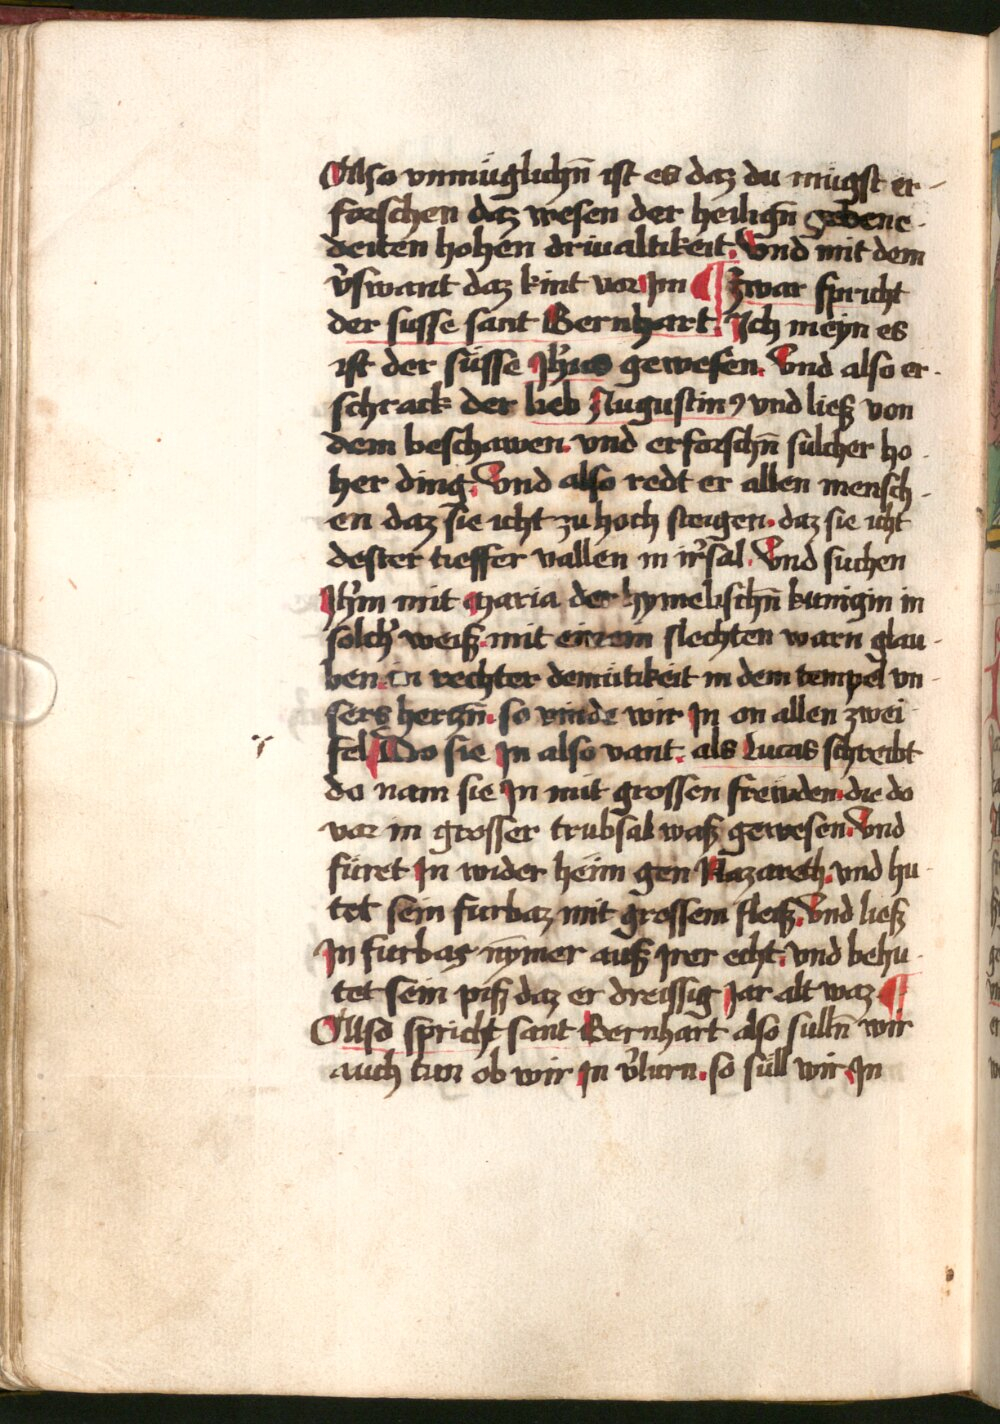 Also vnmüglichn̄ ist es daz du mügst er-
forschen daz wesen der heilign̄ gebene-
deiten hohen driualtikeit. Vnd mit dem
v̉swant daz kint vor Im ¶ Zwar spricht
der susse sant Bernhart. Ich meyn es
ist der süsse Jhus gewesen. Vnd also er-
schrack der lieb Augustinꝰ vnd ließ von
dem beschawen. vnd erforschn̄ sulcher ho-
her ding. Vnd also redt er allen mensch-
en daz sie icht zu hoch steigen. daz sie icht
dester tieffer vallen in irsal. Vnd suchen
Jhm mit Maria der hymelischn̄ kunigin in
solch̉ weiß. mit einem slechten warn glau-
ben. in rechter demütikeit in dem tempel vn-
sers herzn̄. so vinde wir In on allen zwei
fel. Do sie In also vant. als Lucas schreibt
do nam sie In mit grossen frewden. die do
vor in grosser trubsal waß gewesen. Vnd
füret In wider heim gen Nazareth. vnd hu-
tet sein furbaz mit grossem fleiß. Vnd ließ
In furbas nymer auß irer echt. vnd behu-
tet sein piß daz er dreissig Jar alt waz ¶
Allso spricht sant Bernhart also sulln̄ wir
auch tun ob wir In v̉lurn. so süll wir In